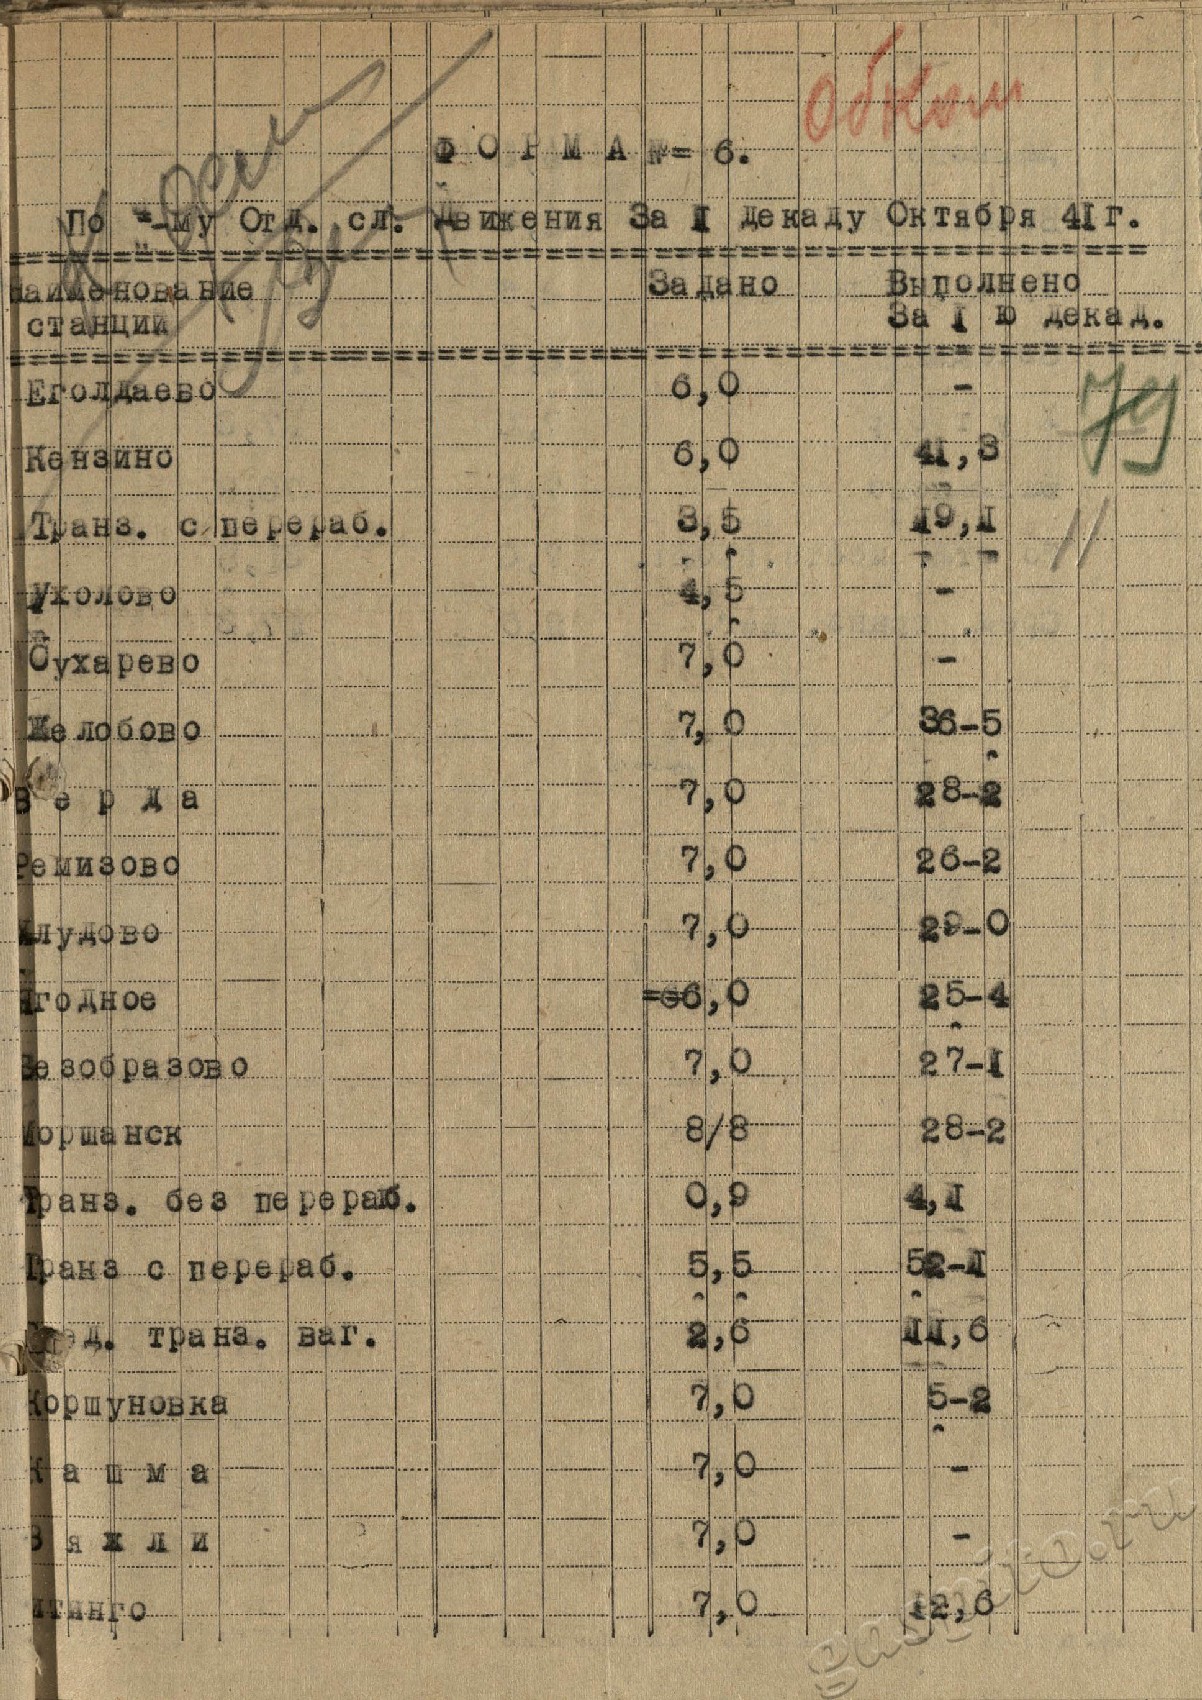 Обком
ФОРМА №= 6.
По =-му Отд. сл. Движения За I декаду Октября 4I г.
Наименование Задано Выполнено
станции За I ю декад.
Еголдаево 6,0 -
Кензино 6,0 4I,3
Транз. с перераб. 3,5 I9,I
Ухолово 4,5 -
Сухарево 7,0 -
Желобово 7,0 36-5
Верда 7,0 28-2
Ремизово 7,0 26-2
Хлудово 7,0 29-0
Ягодное 6,0 25-4
Безобразово 7,0 27-I
Моршанск 8/8 28-2
Транз. без перераб. 0,9 4,I
Транз с перераб. 5,5 52-I
Сред. транз. ваг. 2,6 II,6
Коршуновка 7,0 5-2
Кашма 7,0 -
Вяжли 7,0 -
итинго 7,0 I2,6
gaspito.ru